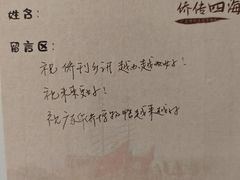 侨传四海
姓名：
留言区：
祝侨刊乡讯越办越好！
祝未来更好！
祝广东华侨博物馆越来越好